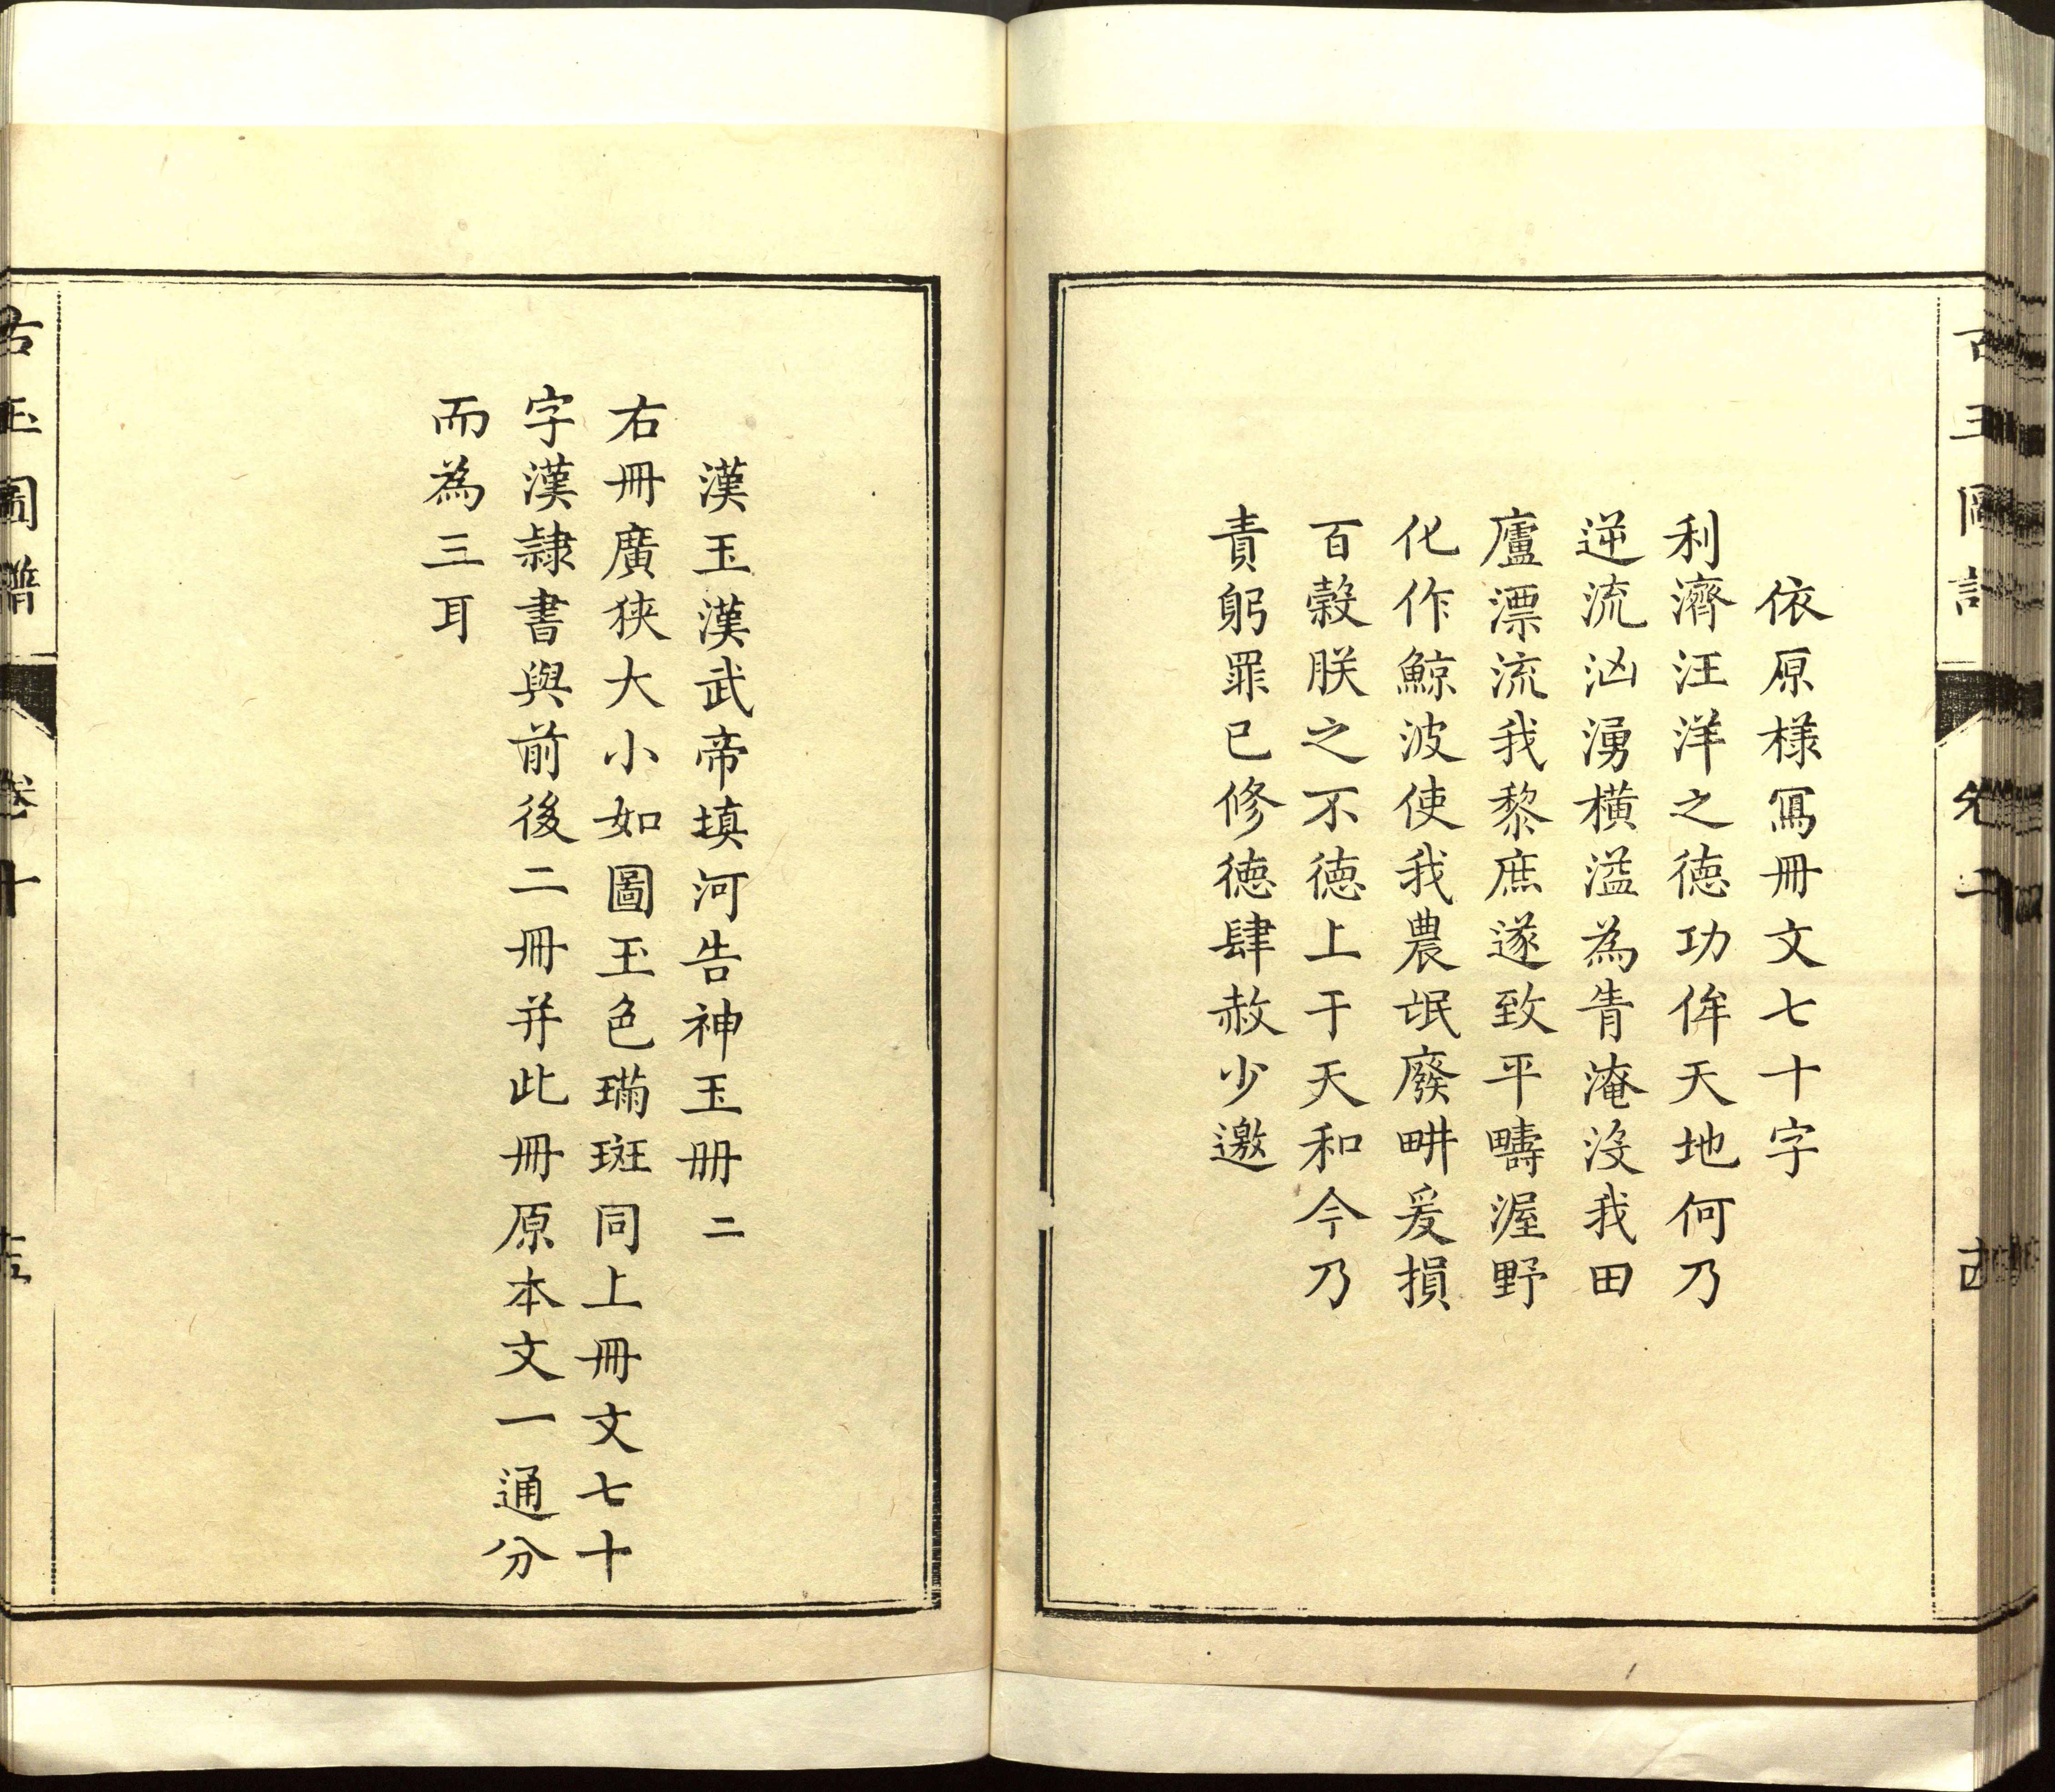 依原様冩冊文七十字
利濟汪洋之徳功侔天地何乃
逆流汹湧橫溢為眚淹没我田
廬漂流我黎庶遂致平疇渥野
化作鯨波使我農氓廢畊爰損
百榖朕之不徳上干天和今乃
責躬罪已修徳肆赦少邀
漢玉漢武帝填河告神玉冊二
右冊廣狹大小如圖玉色璊斑同上冊文七十
字漢隷書與前後二冊并此冊原本文一通分
而為三耳
古玉圖譜 卷十